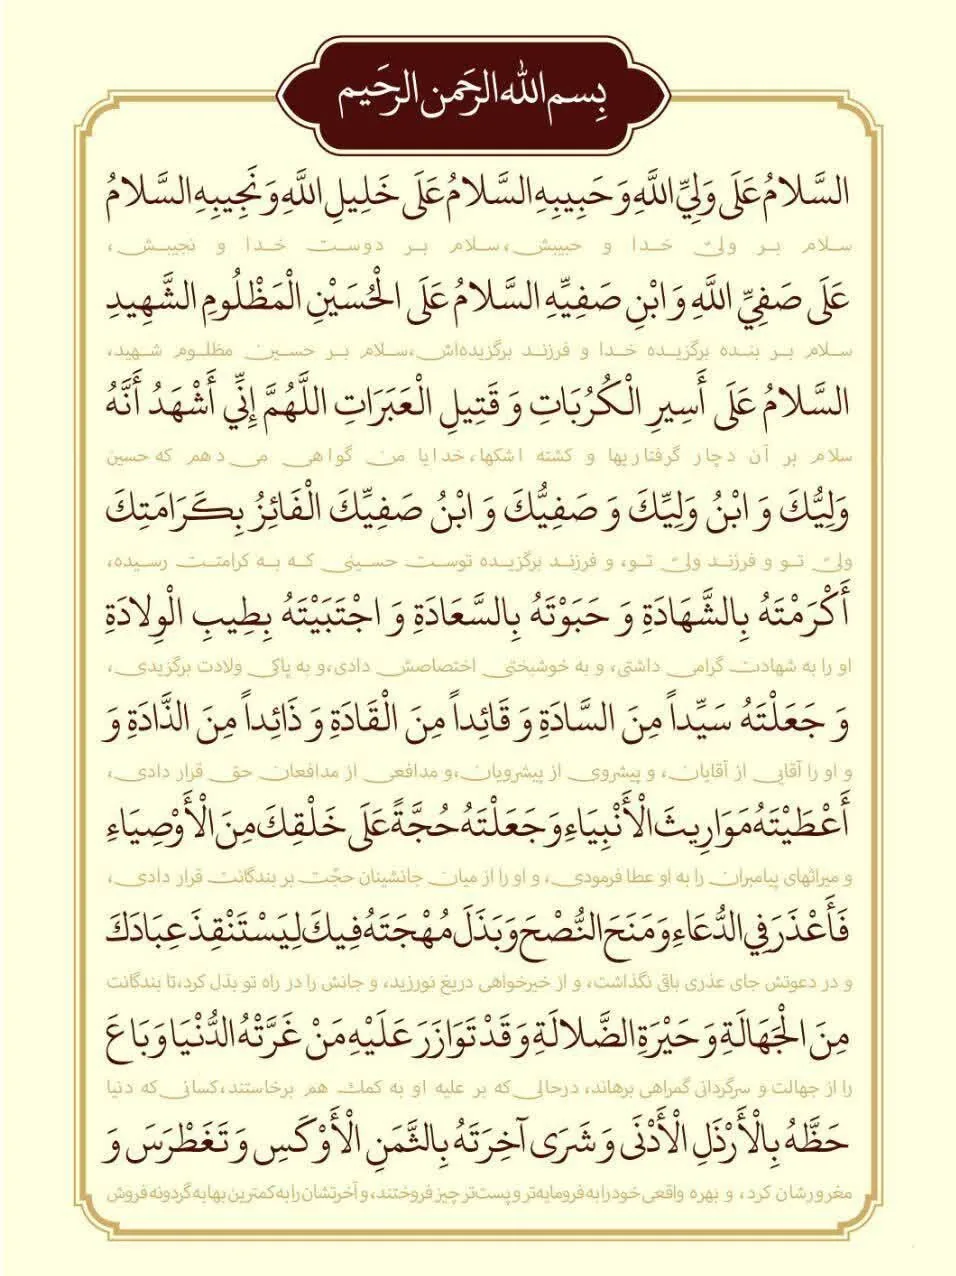 بِسم الله الرَحمن الرَحیم
السَّلامُ عَلَى وَلِيِّ اللَّهِ وَ حَبِيبِهِ السَّلامُ عَلَى خَلِيلِ اللَّهِ وَ نَجِيبِهِ السَّلامُ
سلام بر ولیّ خدا و حبیبش، سلام بر دوست خدا و نجیبش،
عَلَى صَفِيِّ اللَّهِ وَ ابْنِ صَفِيِّهِ السَّلامُ عَلَى الْحُسَيْنِ الْمَظْلُومِ الشَّهِيدِ
سلام بر بنده برگزیده خدا و فرزند برگزیده‌اش، سلام بر حسین مظلوم شهید،
السَّلامُ عَلَى أَسِيرِ الْكُرُبَاتِ وَ قَتِيلِ الْعَبَرَاتِ اللَّهُمَّ إِنِّي أَشْهَدُ أَنَّهُ
سلام بر آن دچار گرفتاریها و کشته اشکها، خدایا من گواهی می دهم که حسین
وَلِيُّكَ وَ ابْنُ وَلِيِّكَ وَ صَفِيُّكَ وَ ابْنُ صَفِيِّكَ الْفَائِزُ بِكَرَامَتِكَ
ولیّ تو و فرزند ولیّ تو، و فرزند برگزیده توست حسینی که به کرامتت رسیده،
أَكْرَمْتَهُ بِالشَّهَادَةِ وَ حَبَوْتَهُ بِالسَّعَادَةِ وَ اجْتَبَيْتَهُ بِطِيبِ الْوِلادَةِ
او را به شهادت گرامی داشتی، و به خوشبختی اختصاصش دادی، و به پاکی ولادت برگزیدی،
وَ جَعَلْتَهُ سَيِّداً مِنَ السَّادَةِ وَ قَائِداً مِنَ الْقَادَةِ وَ ذَائِداً مِنَ الذَّادَةِ وَ
و او را آقایی از آقایان، و پیشروی از پیشرویان، و مدافعی از مدافعان حق قرار دادی،
أَعْطَيْتَهُ مَوَارِيثَ الْأَنْبِيَاءِ وَ جَعَلْتَهُ حُجَّةً عَلَى خَلْقِكَ مِنَ الْأَوْصِيَاءِ
و میراثهای پیامبران را به او عطا فرمودی، و او را از میان جانشینان حجّت بر بندگانت قرار دادی،
فَأَعْذَرَ فِي الدُّعَاءِ وَ مَنَحَ النُّصْحَ وَ بَذَلَ مُهْجَتَهُ فِيكَ لِيَسْتَنْقِذَ عِبَادَكَ
و در دعوتش جای عذری باقی نگذاشت، و از خیرخواهی دریغ نورزید، و جانش را در راه تو بذل کرد، تا بندگانت
مِنَ الْجَهَالَةِ وَ حَيْرَةِ الضَّلالَةِ وَ قَدْ تَوَازَرَ عَلَيْهِ مَنْ غَرَّتْهُ الدُّنْيَا وَ بَاعَ
را از جهالت و سرگردانی گمراهی برهاند، درحالی که بر علیه او به کمک هم برخاستند، کسانی که دنیا
حَظَّهُ بِالْأَرْذَلِ الْأَدْنَى وَ شَرَى آخِرَتَهُ بِالثَّمَنِ الْأَوْكَسِ وَ تَغَطْرَسَ وَ
مغرورشان کرد، و بهره واقعی خود را به فرومایه‌تر و پست‌تر چیز فروختند، و آخرتشان را به کمترین بها به گردونه فروش